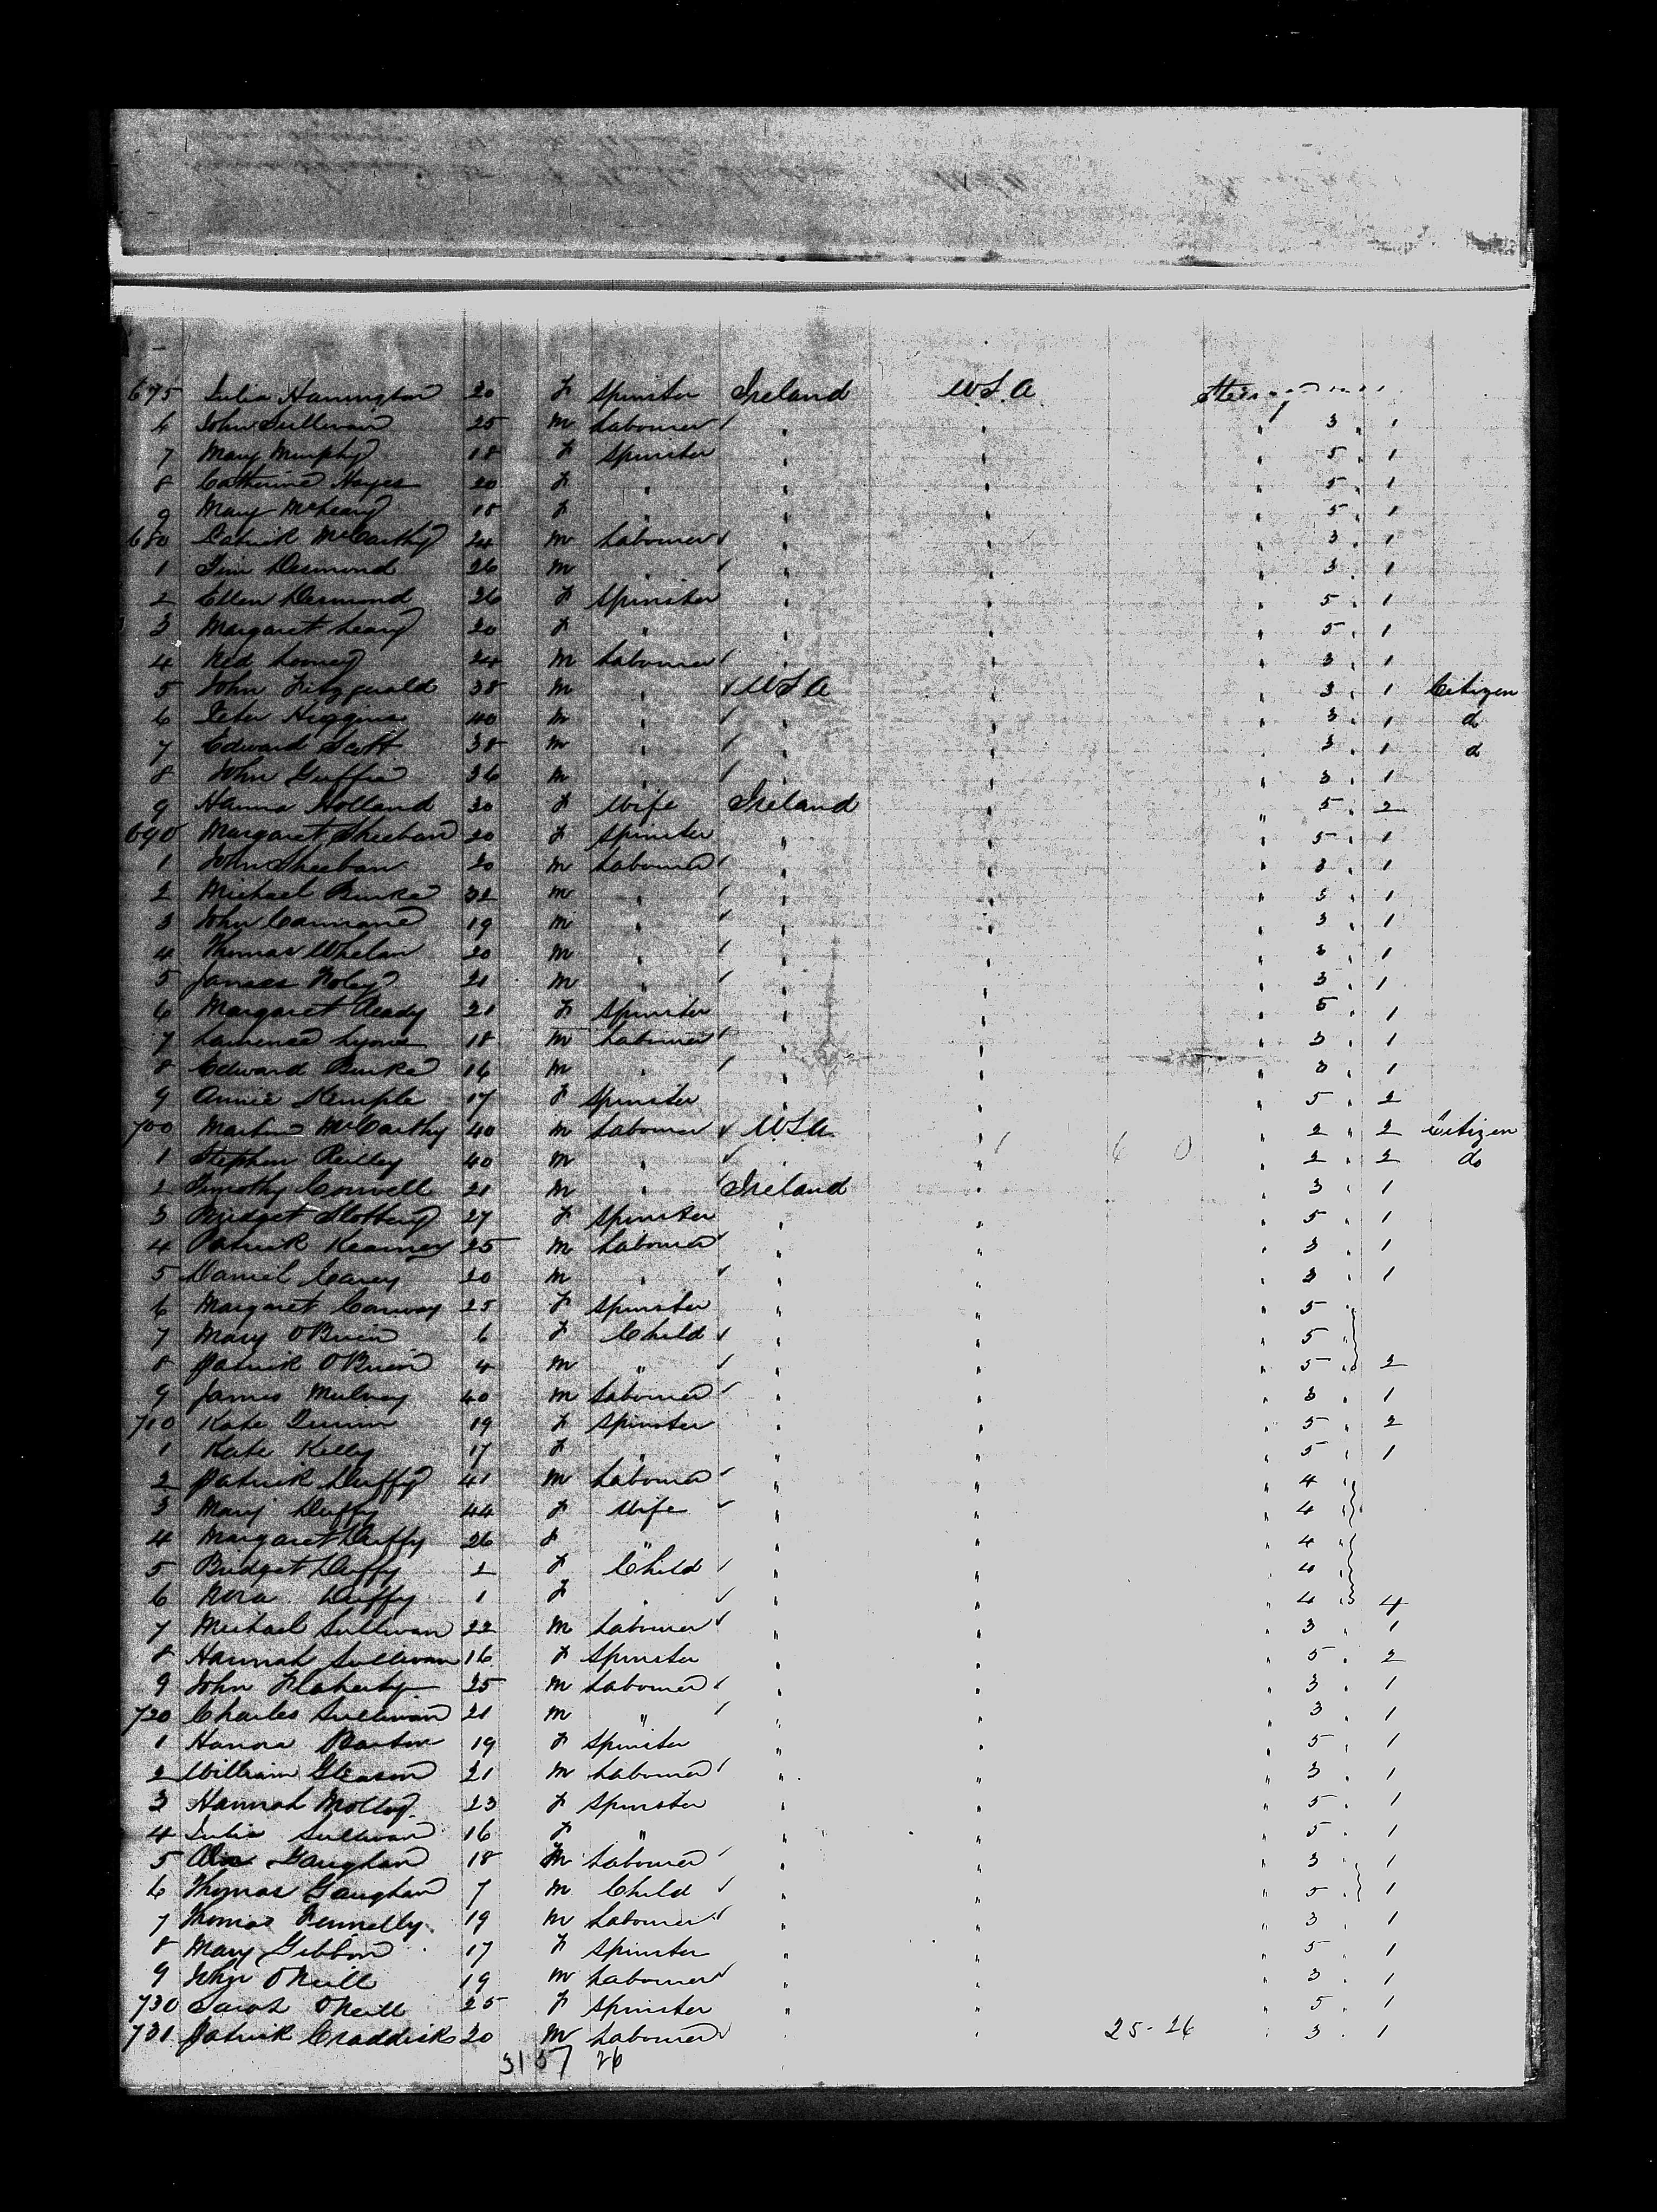 675 Julia Hannington 20 F Spinster Ireland U.S.A
6 John Sullivan 25 M Labourer " " " 3 " 1
7 Mary Murphy 18 F Spinster " " " 5 " 1
8 Catherine Hayes 20 F " " " " 5 " 1
9 Mary 18 F " " " " 5 " 1
680 Patrick McCarthy 24 M Labourer " " " 3 " 1
1 Tim Desmond 26 M " " " " 3 " 1
2 Ellen Desmond 26 F Spinster " " " 5 " 1
3 Margaret Leary 20 F " " " " 5 " 1
4 Ned Looney 24 M Labourer " " " 3 " 1
5 John Fitzgerald 38 M " U.S.A " " 3 " 1 Citizen
6 Peter Higgins 40 M " " " " 3 " 1 do
7 Edward Scott 38 M " " " " 3 " 1 do
8 John 26 M " " " " 3 " 1
9 Hanna Holland 20 F Wife Ireland " " 5 " 2
690 Margaret Sheehan 20 F Spinster " " " 5 " 1
1 John Sheehan 20 M Labourer " " " 3 " 1
2 Michael Burke 32 M " " " " 3 " 1
3 John 19 M " " " " 3 " 1
4 Thomas Whelan 20 M " " " " 3 " 1
5 James Foley 21 M " " " " 3 " 1
6 Margaret Ready 21 F Spinster " " " 5 " 1
7 Laurence Lyons 18 M Labourer " " " 3 " 1
8 Edward Burke 16 M " " " " 3 " 1
9 Annie Kemple 17 F Spinster " " " 5 " 2
700 Martin McCarthy 40 M Labourer U.S.A " 2 " 2 Citizen
1 Stephen Reilley 40 M " " " 2 " 2 do
2 Timothy Conwell 21 M " Ireland " 3 " 1
3 Bridget Slattery 27 F Spinster " " " 5 " 1
4 Patrick Kearney 25 M Labourer " " " 3 " 1
5 Daniel Carey 20 M " " " " 3 " 1
6 Margaret Conway 25 F Spinster " " " 5 "
7 Mary OBrien 6 F Child " " " 5 "
8 Patrick OBrien 4 M " " " " 5 " 2
9 James Mulvey 40 M Labourer " " " 3 " 1
710 Kate 19 F Spinster " " " 5 " 2
1 Kate Kelly 17 F " " " " 5 " 1
2 Patrick Duffy 41 M Labourer " " " 4 "
3 Mary Duffy 44 F Wife " " " 4 "
4 Margaret Duffy 26 F " " " " 4 "
5 Bridget Duffy 2 F Child " " " 4 "
6 Nora Duffy 1 F " " " " 4 " 4
7 Michael Sullivan 22 M Labourer " " " 3 " 1
8 Hannah Sullivan 16 F Spinster " " " 5 " 2
9 John Flaherty 25 M Labourer " " " 3 " 1
720 Charles Sullivan 21 M " " " " 3 " 1
1 Hanora Barton 19 F Spinster " " " 5 " 1
2 William Gleason 21 M Labourer " " " 3 " 1
3 Hannah Molloy 23 F Spinster " " " 5 " 1
4 Julia Sullivan 16 F " " " " 5 " 1
5 Gaughan 18 M Labourer " " " 3 " 1
6 Thomas Gaughan 7 M Child " " " 5 " 1
7 Thomas Fennelly 19 M Labourer " " " 3 " 1
8 Mary Gibbon 17 F Spinster " " " 5 " 1
9 John ONeill 19 M Labourer " " " 3 " 1
730 Sarah ONeill 25 F Spinster " " " 5 " 1
731 Patrick Craddick 20 M Labourer " " 25-26 " 3 " 1
31 57 26